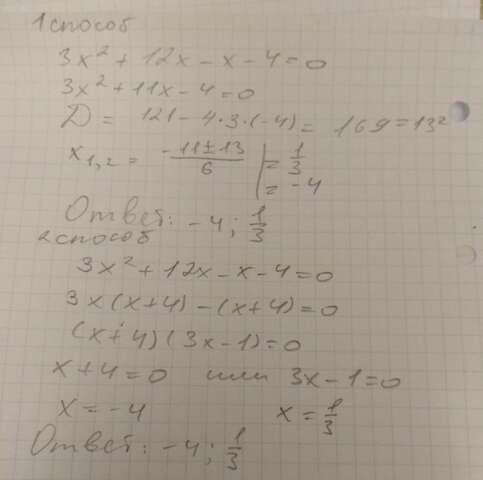 1 способ
3x² + 12x - x - 4 = 0
3x² + 11x - 4 = 0
D = 121 - 4·3·(-4) = 169 = 13²
x₁,₂ = (-11 ± 13)/6 | = 1/3
= -4
Ответ: -4; 1/3
2 способ
3x² + 12x - x - 4 = 0
3x(x+4) - (x+4) = 0
(x+4)(3x-1) = 0
x + 4 = 0 или 3x - 1 = 0
x = -4 x = 1/3
Ответ: -4; 1/3